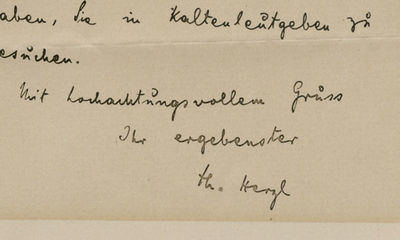 aben, Sie in Kaltenleutgeben zu
esuchen.
Mit hochachtungsvollem Gruss
Ihr ergebenster
Th. Herzl